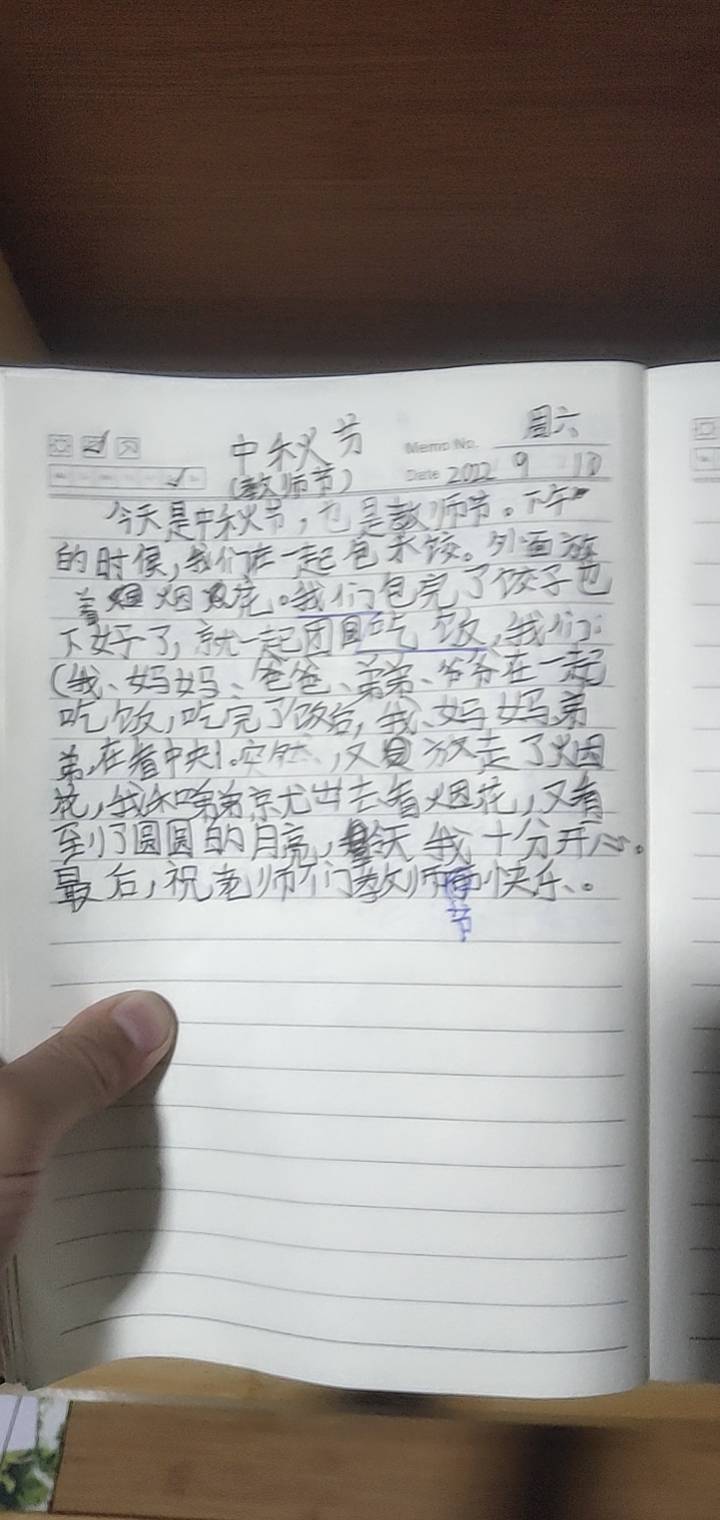 周六
中秋节 Memo No.
(教师节) Date 2022 9 10
今天是中秋节,也是教师节。下午
的时候,我们在一起包水饺。外面放
着烟花。我们包完了饺子也
下好了,就一起团圆吃饭,我们:
(我、妈妈、爸爸、弟弟、爷爷在一起
吃饭,吃完了饭后,我、妈妈、弟
弟,在看中央1。突然,又放走了烟
花,我和弟弟京尤出去看烟花,又看
到了圆圆的月亮,天我十分开心。
最后,祝老师们教师节快乐。